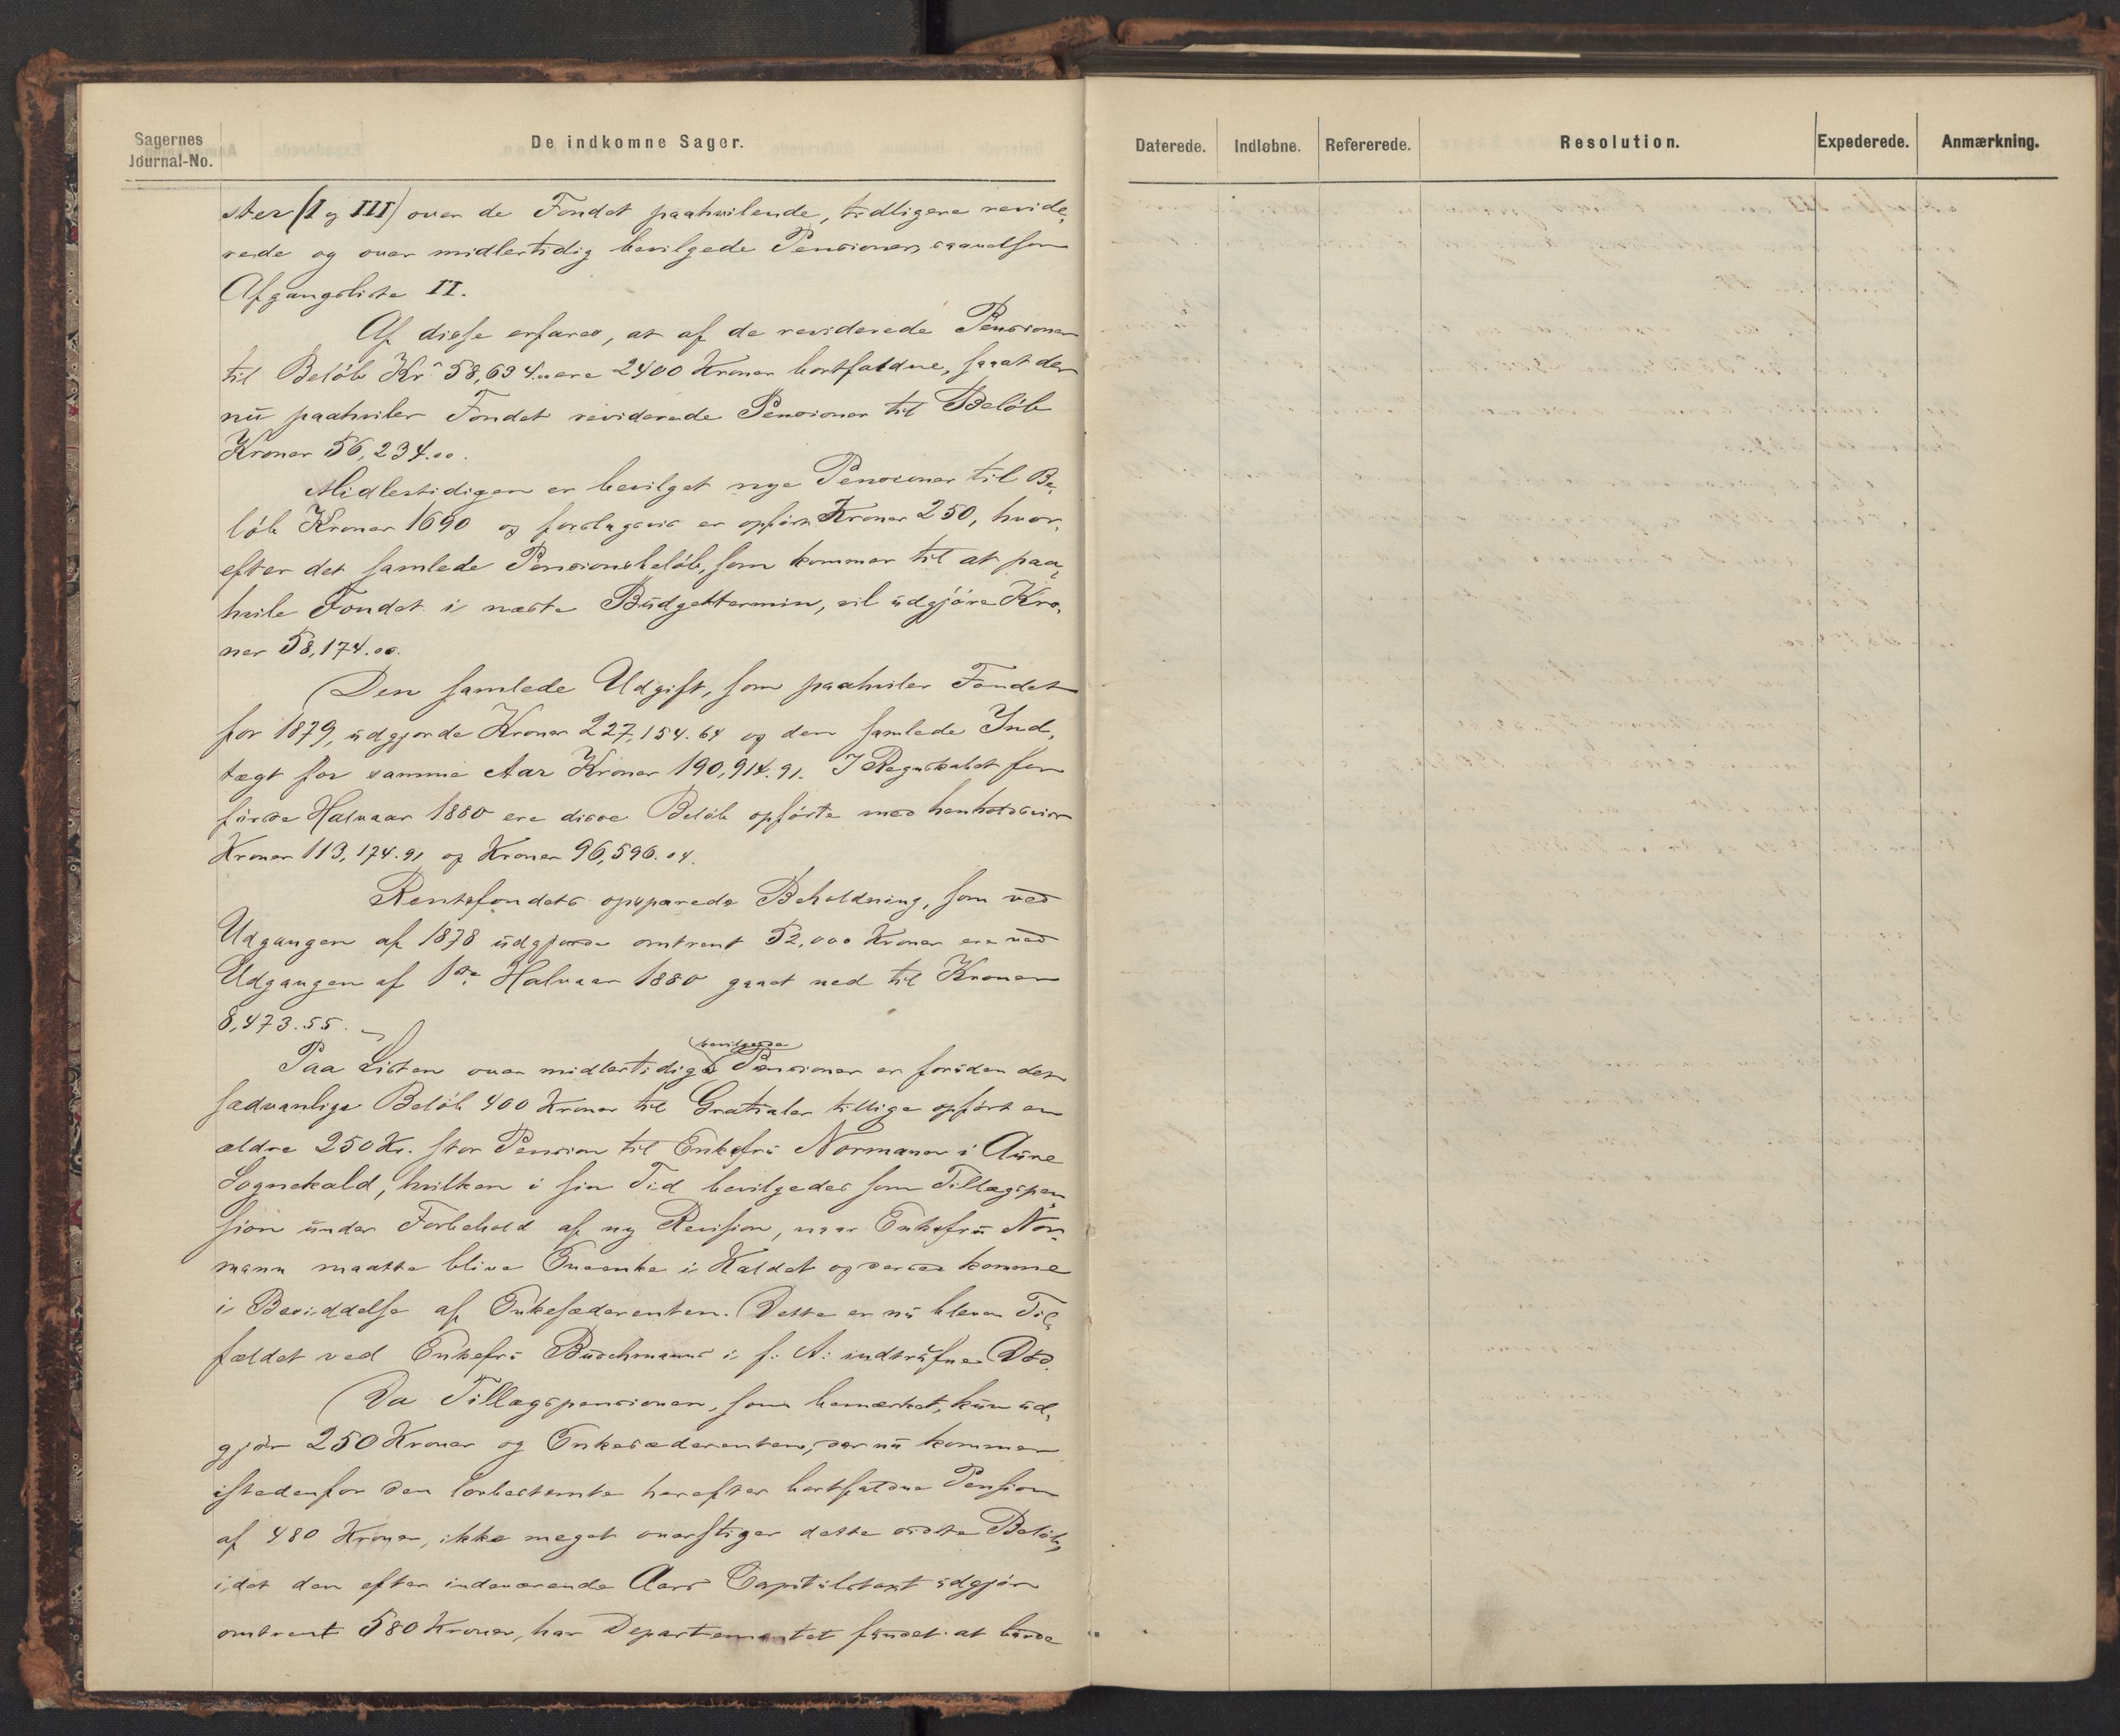 Sagernes
Journal-No.
De indkomne Sager.
ster (I og III) over de Fondet paahvilende, tidligere revide,
rede og over midlertidig bevilgede Pensioner, saavelsom
Afgangsliste II.
Af disse erfares, at af de reviderede Pensioner
til Beløb Kr. 58,634.00 ere 2400 Kroner bortfaldne, saaat der
nu paahviler Fondet reviderede Pensioner til Beløb
Kroner 56,234.00.
Midlertidigen er bevilget nye Pensioner til Be,
løb Kroner 1690 og forslagsvis er opført Kroner 250, hvor,
efter det samlede Pensionsbeløb, som kommer til at paa,
hvile Fondet i næste Budgettermin, vil udgjøre Kro,
ner 58,174.00.
Den samlede Udgift, som paahviler Fondet
for 1879, udgjorde Kroner 227,154.64 og den samlede Ind,
tægt for samme Aar Kroner 190,914.91. I Regnskabet for
første Halvaar 1880 ere disse Beløb opførte med henholdsvis
Kroner 113,174.91 og Kroner 96,596.04.
Rentefondets opsparede Beholdning, som ved
Udgangen af 1878 udgjorde omtrent 52,000 Kroner ere ved
Udgangen af 1ste Halvaar 1880 gaaet ned til Kroner
8,473.55.
bevilgede
Paa Listen over midlertidige Pensioner er foruden det
sædvanlige Beløb 400 Kroner til Gratialer tillige opført en
ældre 250 Kr. stor Pension til Enkefru Normann i Aure
Sognekald, hvilken i sin Tid bevilgedes som Tillægspen,
sion under Forbehold af ny Revision, naar Enkefru Nor,
mann maatte blive Eneenke i Kaldet og derved komme
i Besiddelse af Enkesæderenten. Dette er nu bleven Til,
fældet ved Enkefru Buschmanns i f: A: indtrufne Død.
Da Tillægspensionen, som bemærket, kun ud,
gjør 250 Kroner og Enkesæderenten, der nu kommer
istedenfor den lovbestemte herefter bortfaldne Pension
af 480 Kroner, ikke meget overstiger dette sidste Beløb,
idet den efter indeværende Aars Capitulstaxt udgjør
omtrent 580 Kroner, har Departementet fundet at burde
Daterede.
Indløbne.
Refererede.
Resolution.
Expederede.
Anmærkning.